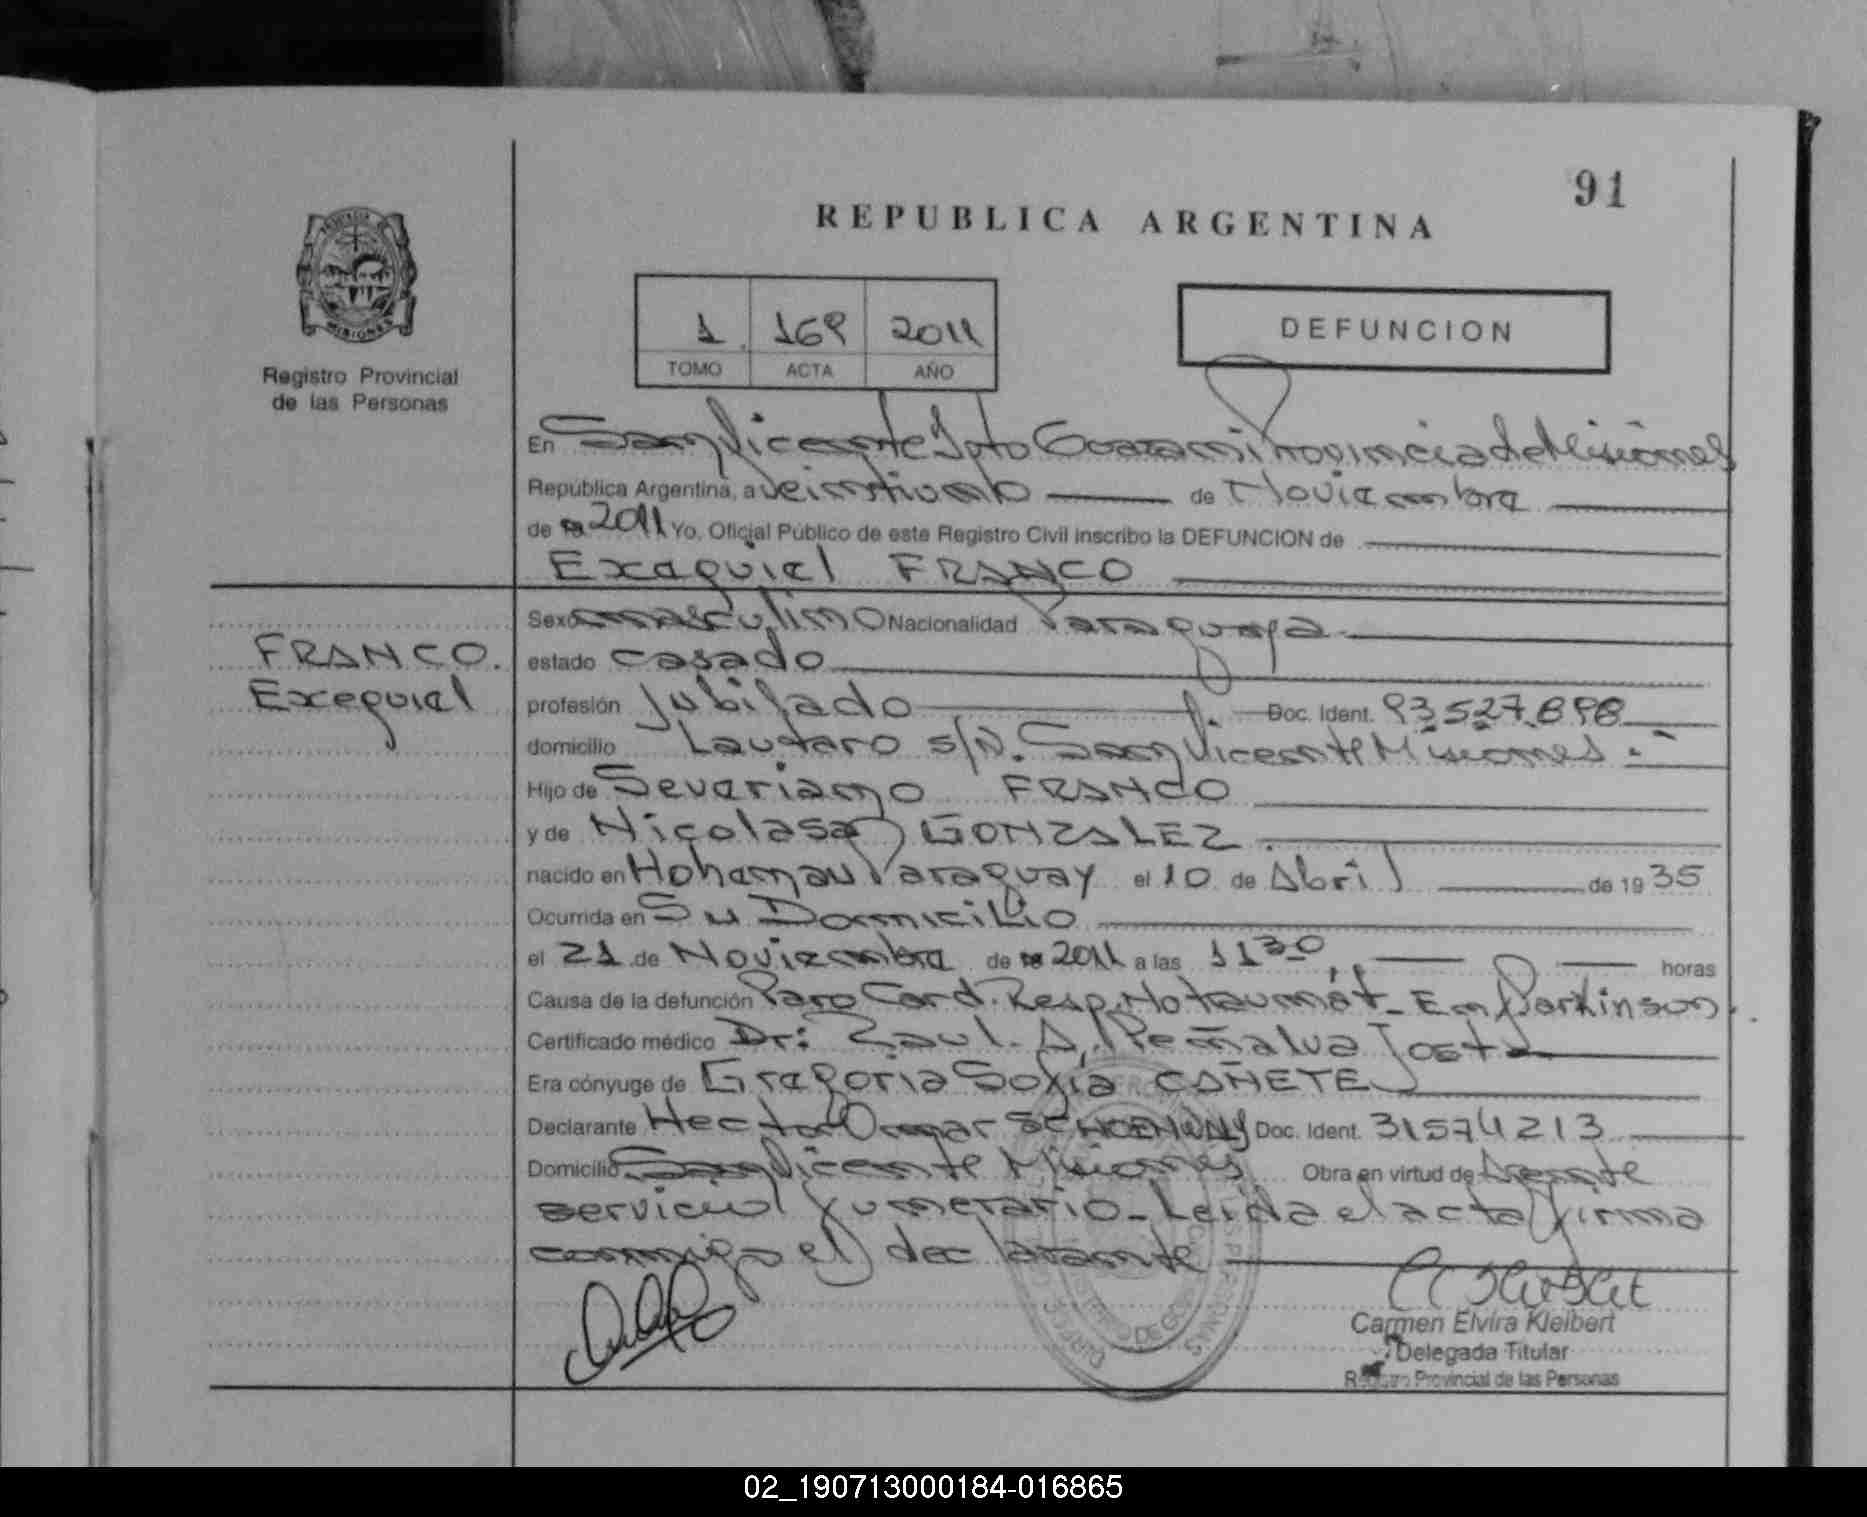 91
REPUBLICA ARGENTINA
MISIONES
Registro Provincial
de las Personas
1 169 2011
TOMO ACTA AÑO
DEFUNCION
En San Vicente Dpto Guarani Provincia de Misiones
República Argentina, a veintiuno de Noviembre
de 2011 Yo, Oficial Público de este Registro Civil inscribo la DEFUNCION de
Exequiel FRANCO
FRANCO.
Exequiel
Sexo masculino Nacionalidad Paraguaya
estado casado
profesión Jubilado Doc. Ident. 93.527.898
domicilio Lautaro s/N. San Vicente Misiones
Hijo de Severiano FRANCO
y de Nicolasa GONZALEZ
nacido en Hohenau Paraguay el 10 de Abril de 1935
Ocurrida en Su Domicilio
el 21 de Noviembre de 2011 a las 11 30 horas
Causa de la defunción Paro Card. Resp. No traumát_ Enf Parkinson.
Certificado médico Dr: Raul. A. Peñalva Jost
Era cónyuge de Gregoria Sofia CAÑETE
Declarante Hector Omar Doc. Ident. 31574213
Domicilio San Vicente Misiones Obra en virtud de
servicio funerario_ Leida el acta firma
conmigo el declarante
Carmen Elvira Kleibert
Delegada Titular
Registro Provincial de las Personas
02_190713000184-016865